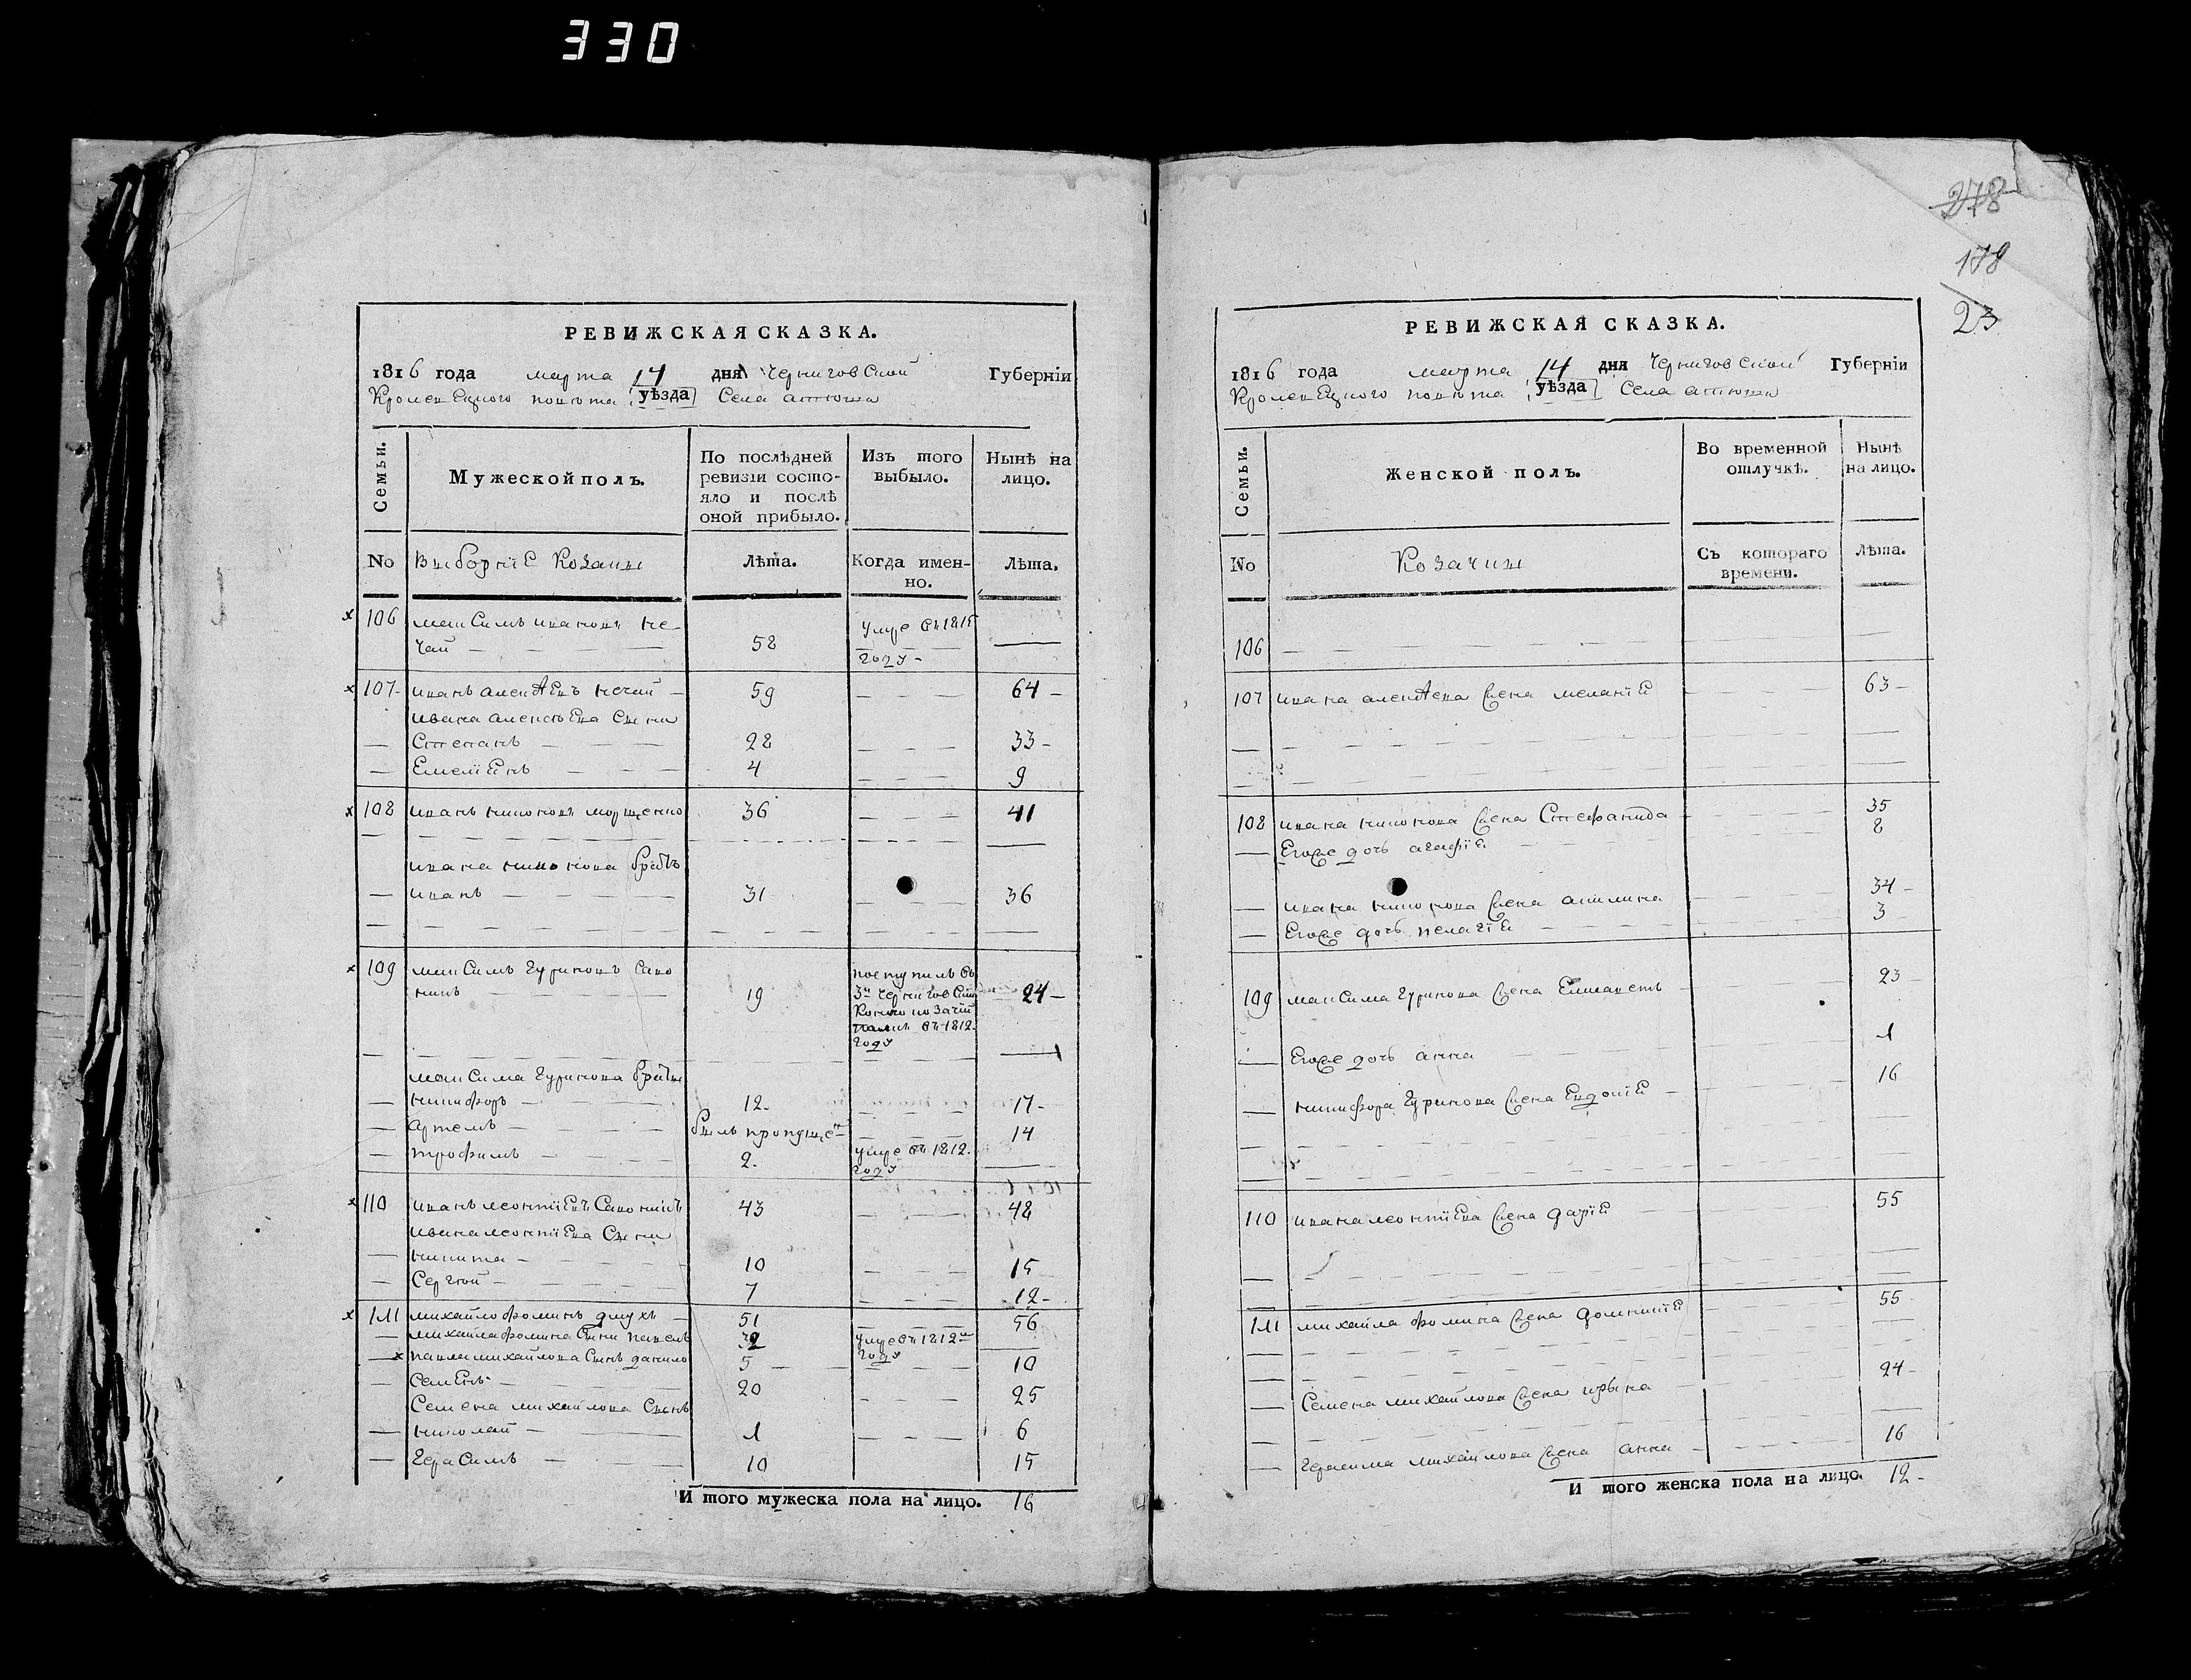 330
278
178
23
РЕВИЖСКАЯ СКАЗКА.
1816 года марта 14 дня Черниговской Губерніи
Кролевецкого повѣта уѣзда Села атюши
Семьи.
Мужеской полъ.
По послѣдней ревизіи состо-
яло и послѣ
оной прибыло.
Изъ того
выбыло.
Нынѣ на
лицо.
No
Виборніе Козаки
Лѣта.
Когда имен-
но.
Лѣта.
106 максимъ ивановъ не-
чай 58 умре въ 1815
году
107 иванъ алексѣевъ нечай 59 64
ивана алексѣева сини
Степанъ 28 33
Емеліянъ 4 9
108 иванъ никоновъ морщенко 36 41
ивана никонова братъ
иванъ 31 36
109 максимъ гуриновъ
19 поступилъ въ
3й Черниговский
Конно козачій
полкъ въ 1812
году 24
максима гуринова братья
никифоръ 12 17
артемъ былъ пропущен 14
трофимъ 2 умре въ 1812
году
110 иванъ леонтіевъ 43 48
ивана леонтіева сини
никита 10 15
Сергѣй 7 12
111 михайло фоминъ дмухъ 51 56
михайла фомина сини павелъ 32 умре въ 1812м
году
павла михайлова синъ данило 5 10
Семенъ 20 25
Семена михайлова синъ
николай 1 6
герасимъ 10 15
И того мужеска пола на лицо. 16
РЕВИЖСКАЯ СКАЗКА.
1816 года марта 14 дня Черниговской Губерніи
Кролевецкого повѣта уѣзда Села атюши
Семьи.
Женской полъ.
Во временной
отлучкѣ.
Нынѣ
на лицо.
No
Козачки
Съ котораго
времени.
Лѣта.
106
107 ивана алексѣева жена меланія 63
108 ивана никонова жена Стефанида 35
Егоже дочь агафія 8
ивана никонова жена акилина 34
Егоже дочь пелагія 3
109 максима гуринова жена Елисаветъ 23
Егоже дочь анна 1
никифора гуринова жена Евдокія 16
110 ивана леонтіева жена дарія 55
111 михайла фомина жена домникія 55
Семена михайлова жена ирына 24
герасима михайлова жена анна 16
И того женска пола на лицо. 12